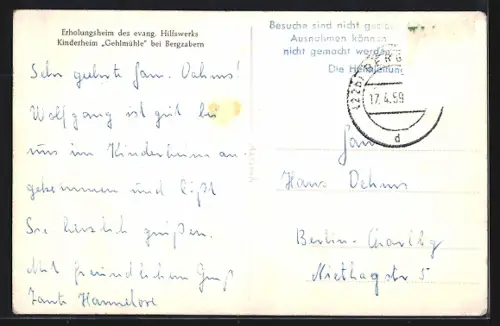 Erholungsheim des evang. Hilfswerks
Kinderheim „Gehlmühle" bei Bergzabern
Sehr geehrte Fam. Dehms!
Wolfgang ist gut bei
uns im Kinderheim an
gekommen und läßt
Sie herzlich grüßen.
Mit freundlichem Gruß
Tante Hannelore
Besuche sind nicht
Ausnahmen können
nicht gemacht werden
Die
(22b) BERG
17.4.59
d
Fam
Hans Dehms
Berlin-Charlbg
Niethagstr 5